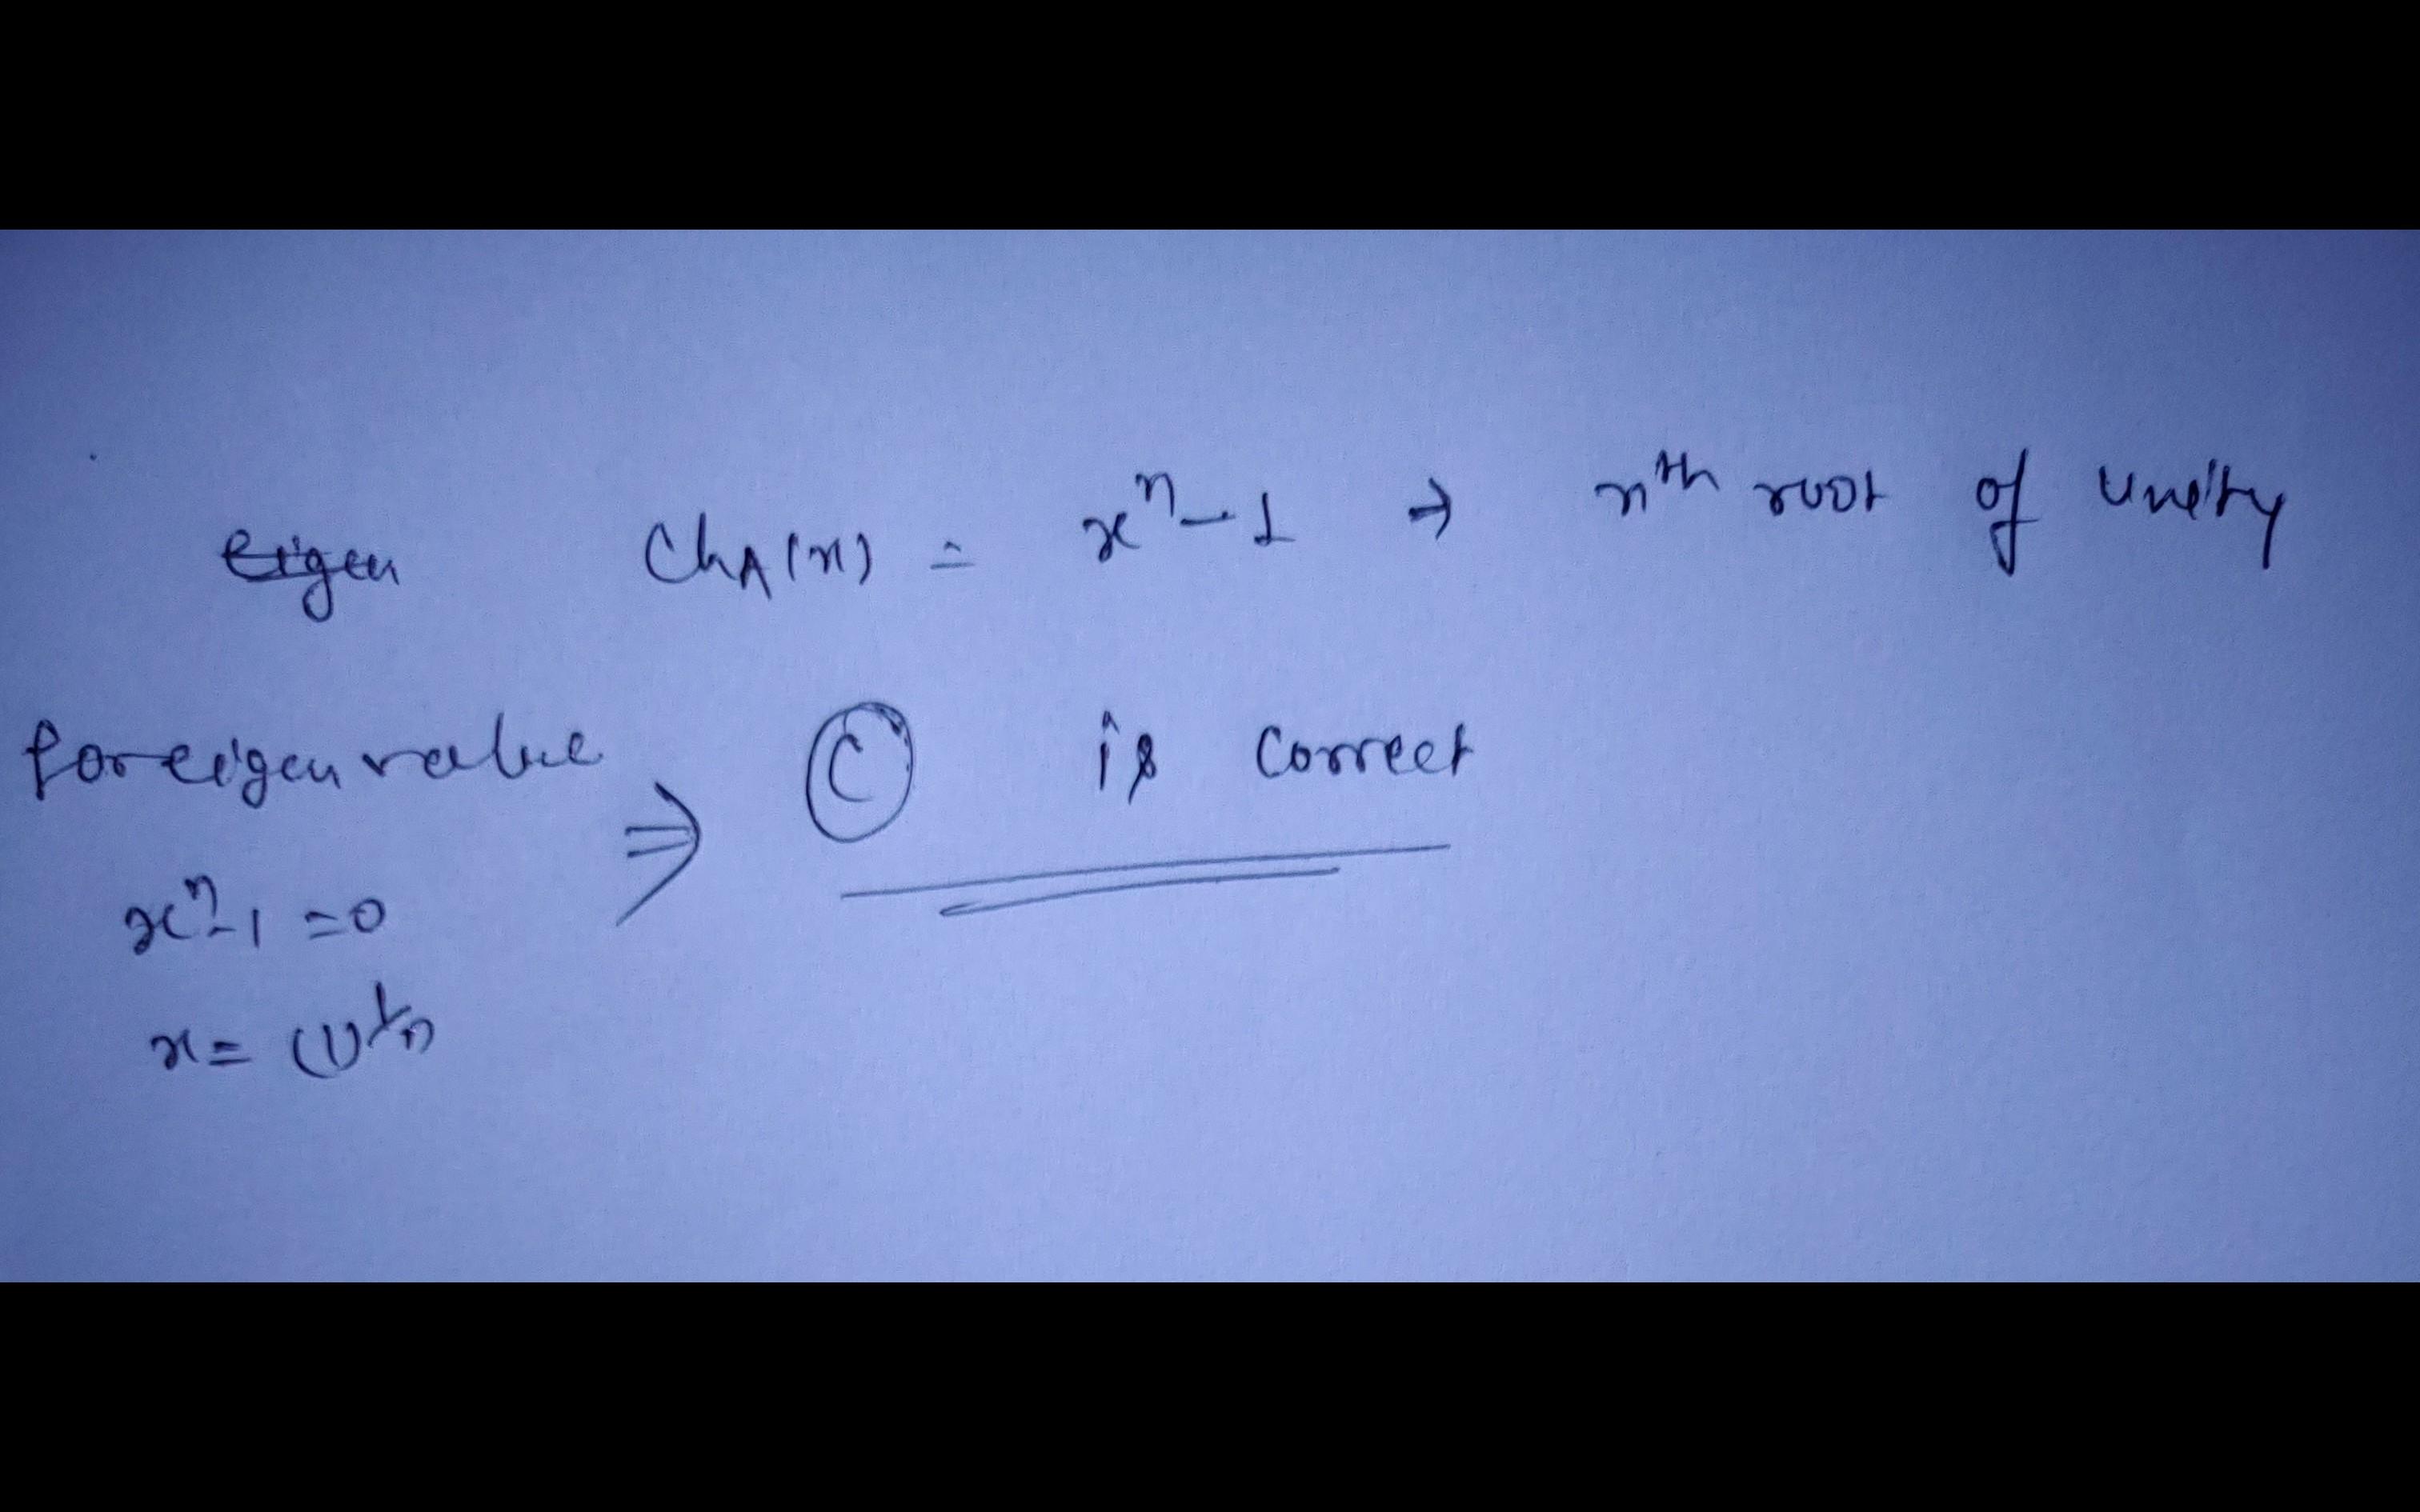 eigen Ch_A(x) = x^n - 1 → n^th root of unity
for eigen value ⇒ (C) is correct
x^n - 1 = 0
x = (1)^1/n